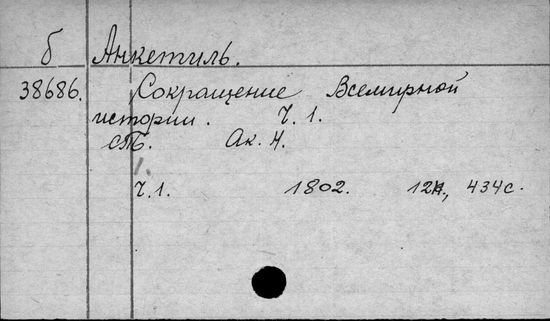 б Анкетиль.
38686. Сокращение Всемирной
истории. Ч. 1.
СПб. Ак. Н.
1.
Ч. 1. 1802. 12н., 434 с.